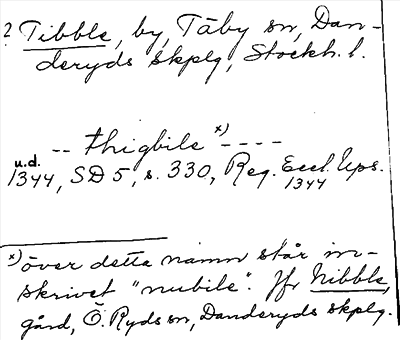 ? Tibble, by, Täby sn, Dan-
deryds skplg, Stockh. l.
-- thigbile x) ----
u.d.
1344, SD 5, s. 330, Reg. Eccl. Ups.
1344
x) över detta namn står in-
skrivet "nubile". Jfr Nibble,
gård, Ö. Ryds sn, Danderyds skplg.